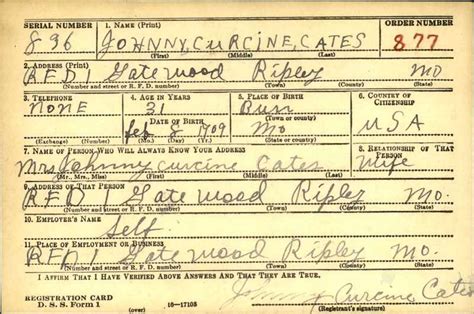 SERIAL NUMBER 1. NAME (Print) ORDER NUMBER
836 JOHNNY, CURCINE, CATES 877
(First) (Middle) (Last)
2. ADDRESS (Print)
R.F.D 1 Gatewood Ripley Mo
(Number and street or R. F. D. number) (Town) (County) (State)
3. TELEPHONE 4. AGE IN YEARS 5. PLACE OF BIRTH 6. COUNTRY OF CITIZENSHIP
NONE 31
DATE OF BIRTH (Town or county)
Feb 8 1909 Mo USA
(Exchange) (Number) (Mo.) (Day) (Yr.) (State or country)
7. NAME OF PERSON WHO WILL ALWAYS KNOW YOUR ADDRESS 8. RELATIONSHIP OF THAT PERSON
Mrs Johnny Curcine Cates Wife
(Mr., Mrs., Miss) (First) (Middle) (Last)
9. ADDRESS OF THAT PERSON
R.F.D Gatewood Ripley Mo.
(Number and street or R. F. D. number) (Town) (County) (State)
10. EMPLOYER'S NAME
Self
11. PLACE OF EMPLOYMENT OR BUSINESS
R.F.D 1 Gatewood Ripley Mo.
(Number and street or R. F. D. number) (Town) (County) (State)
I AFFIRM THAT I HAVE VERIFIED ABOVE ANSWERS AND THAT THEY ARE TRUE.
REGISTRATION CARD Johnny Curcine Cates
D. S. S. Form 1 16—17105 (Registrant's signature)